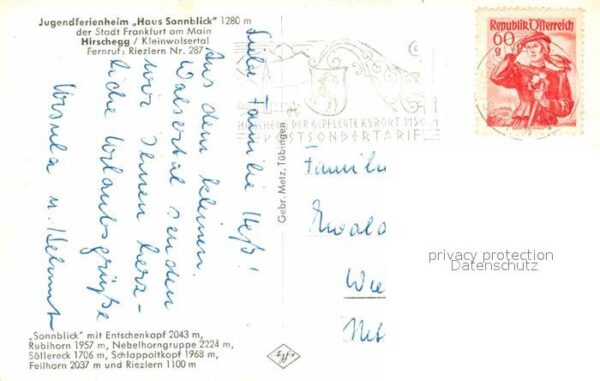 Jugendferienheim „Haus Sonnblick" 1280 m
der Stadt Frankfurt am Main
Hirschegg / Kleinwalsertal
Fernruf: Riezlern Nr. 287
Liebe Familie Heß!
Aus dem kleinen
Walsertal senden
wir Ihnen herz-
liche Urlaubsgrüße
Ursula u. Helmut
„Sonnblick" mit Entschenkopf 2043 m,
Rubihorn 1957 m, Nebelhorngruppe 2224 m,
Söllereck 1706 m, Schlappoltkopf 1968 m,
Feilhorn 2037 m und Riezlern 1100 m
Gebr. Metz, Tübingen
HIRSCHEGG DER GEPFLEGTE KURORT 1150 m
POSTSONDERTARIF
Republik Österreich
60
g
Famili
Ewald
Wie
privacy protection
Datenschutz